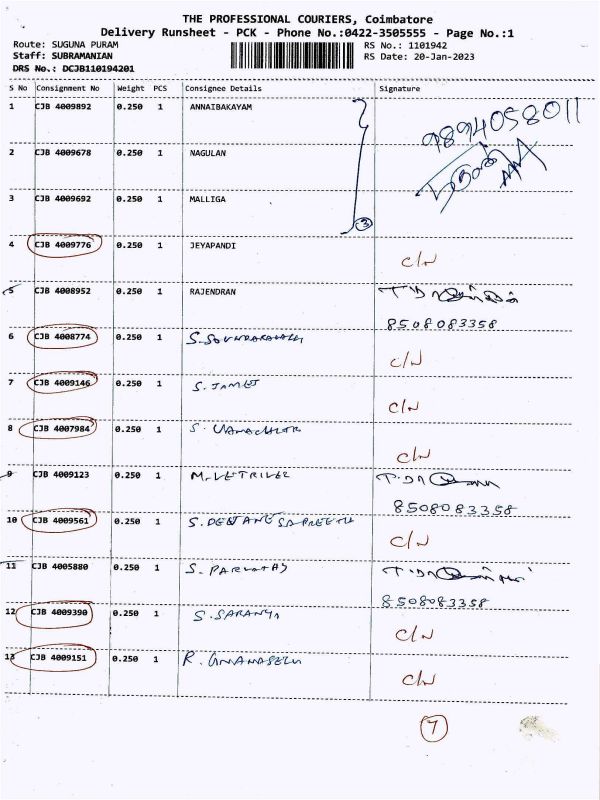 THE PROFESSIONAL COURIERS, Coimbatore
Delivery Runsheet - PCK - Phone No.:0422-3505555 - Page No.:1
Route: SUGUNA PURAM RS No.: 1101942
Staff: SUBRAMANIAN RS Date: 20-Jan-2023
DRS No.: DCJB110194201
S No Consignment No Weight PCS Consignee Details Signature
1 CJB 4009892 0.250 1 ANNAIBAKAYAM 9894058011
2 CJB 4009678 0.250 1 NAGULAN
3 CJB 4009692 0.250 1 MALLIGA
3
4 CJB 4009776 0.250 1 JEYAPANDI C/N
5 CJB 4008952 0.250 1 RAJENDRAN
8508083358
6 CJB 4008774 0.250 1 S. C/N
7 CJB 4009146 0.250 1 S. JAMES C/N
8 CJB 4007984 0.250 1 S. C/N
9 CJB 4009123 0.250 1 M. VETRIVEL
8508083358
10 CJB 4009561 0.250 1 S. C/N
11 CJB 4005880 0.250 1 S. PARVATHY
8508083358
12 CJB 4009390 0.250 1 S. SARANYA C/N
13 CJB 4009151 0.250 1 R. GNANASELVI C/N
7